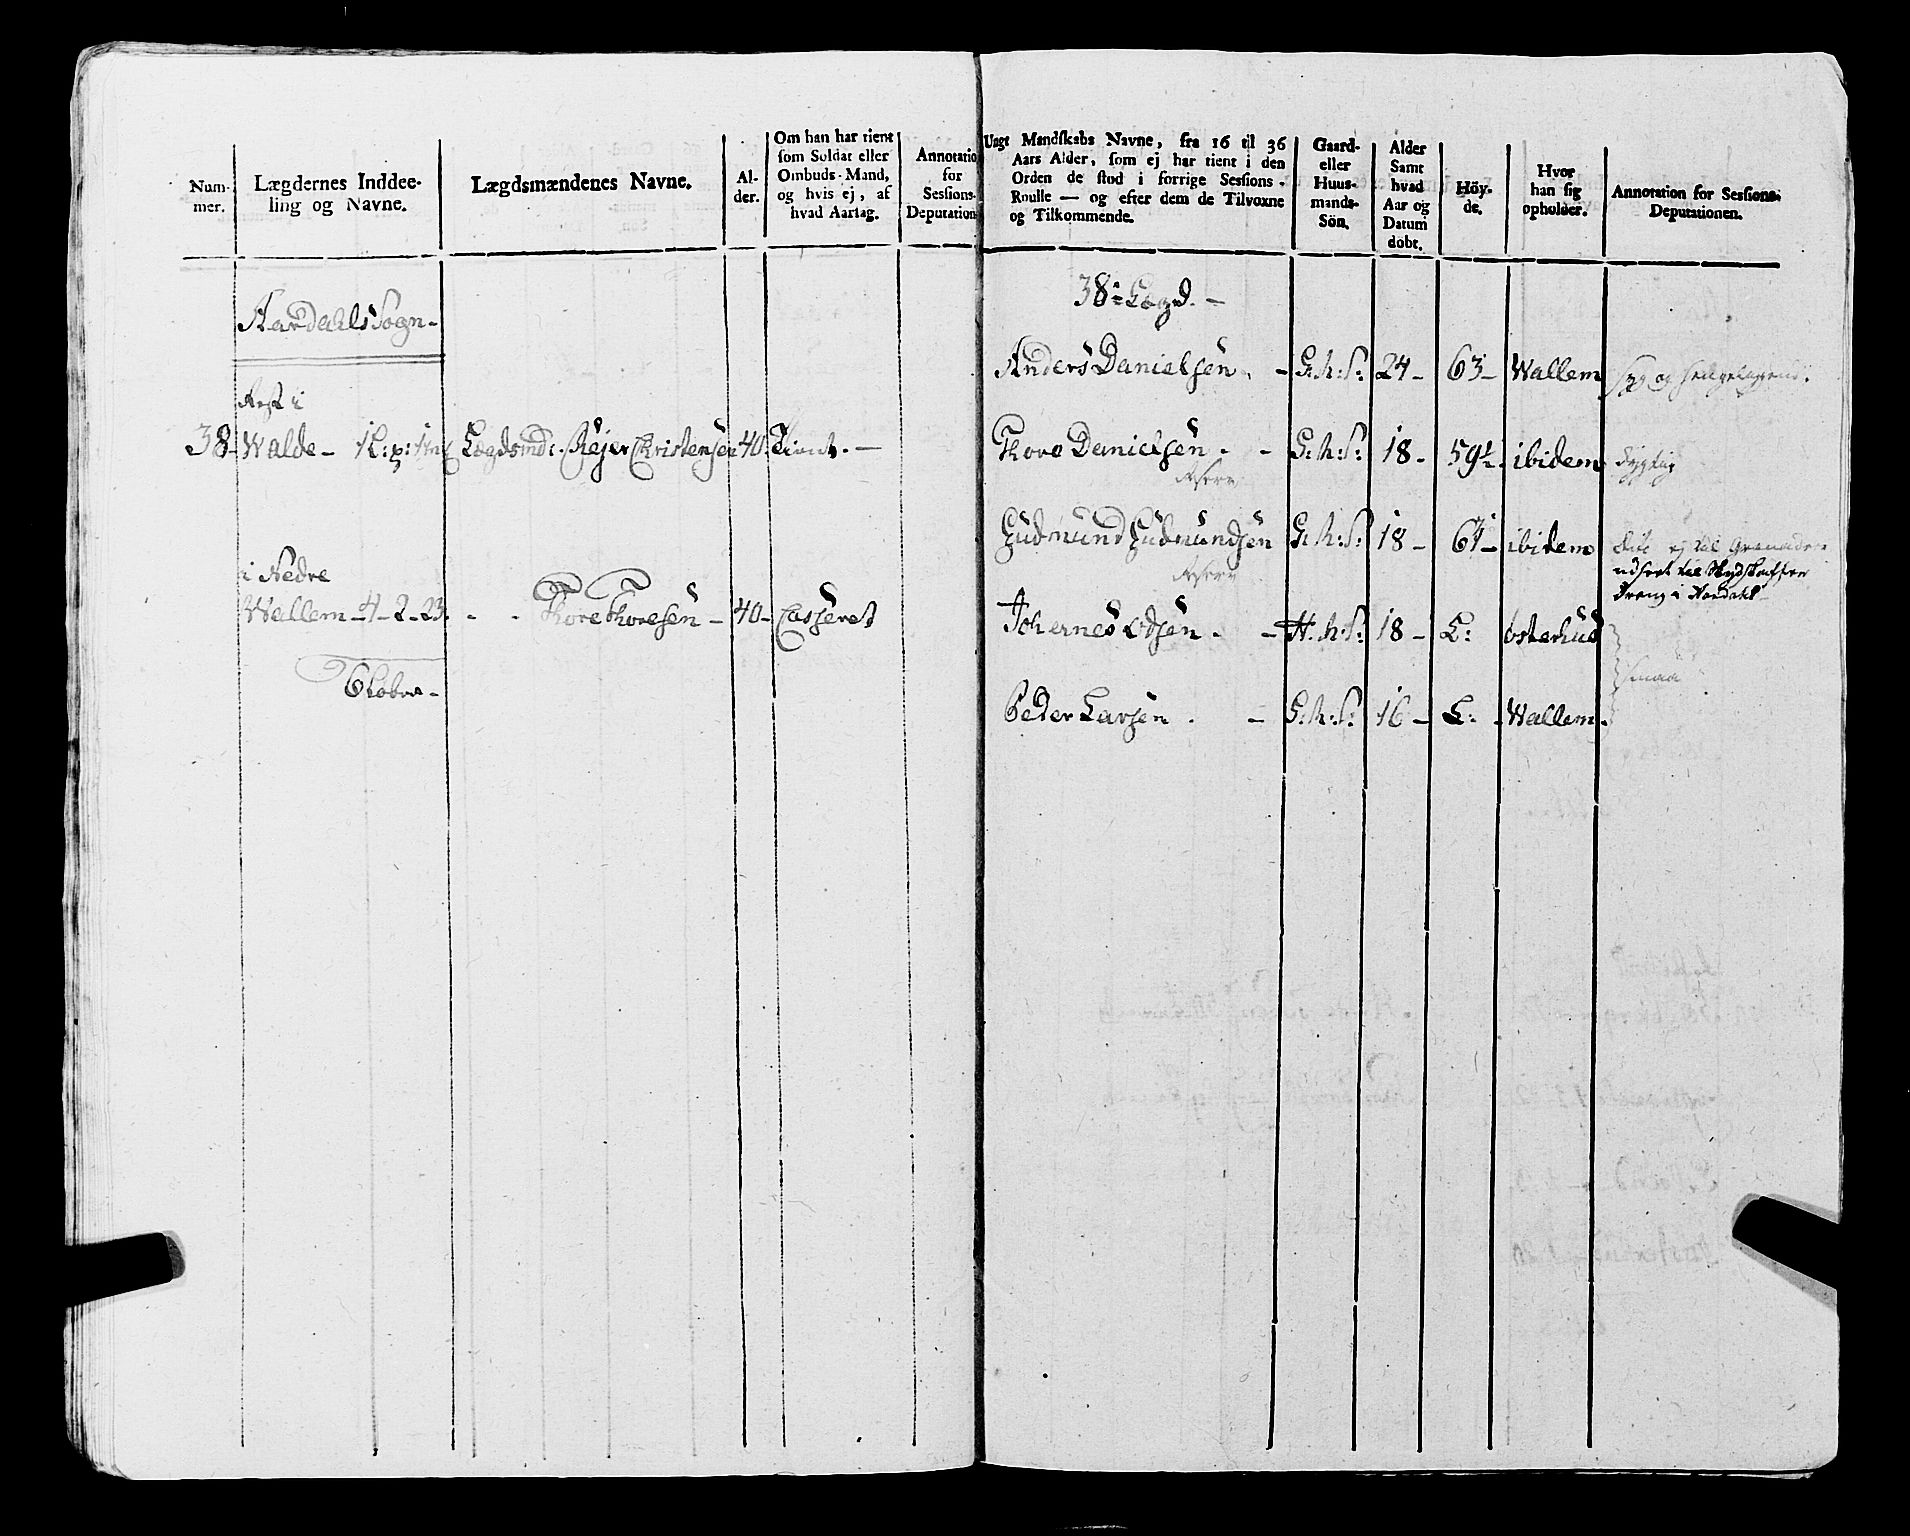 Num-
mer.
Lægdernes Inddee-
ling og Navne.
Lægdsmændenes Navne.
Al-
der.
Om han har tient
som Soldat eller
Ombuds-Mand,
og hvis ej, af
hvad Aarsag.
Annotatio
for
Sessions-
Deputation
Aardahls Sogn-
Rest i
38- Walde- 1 L: p: Lægdsmd: Rejer Christensen 40. Tient. —
i Nedre
Wallem - 4 - 2 - 23. - - Thore Thoresen - 40 - Casseret
Ungt Mandskabs Navne, fra 16 til 36
Aars Alder, som ej har tient i den
Orden de stod i forrige Sessions-
Roulle — og efter dem de Tilvoxne
og Tilkommende.
Gaard-
eller
Huus-
mands-
Sön.
Alder
Samt
hvad
Aar og
Datum
döbt.
Höy-
de.
Hvor
han sig
opholder.
Annotation for Sessions-
Deputationen.
38te Lægd. —
Anders Danielsen. - G: M: S: 24 - 63 - Wallem Syg og sengeliggend.
Thore Danielsen. - G: M: S: 18 - 59½ ibidem dygtig
Reserv
Gudmund Gudmundsen G: M: S: 18 - 64 - ibidem ej til Grenader
Reserv
udseet til Skydskaffer
Dreng i Aardahl
Johannes Odsen. - H: M: S: 18 - L: Österhus
smaa
Peder Larsen. - G: M: S: 16 - L: - Wallem.